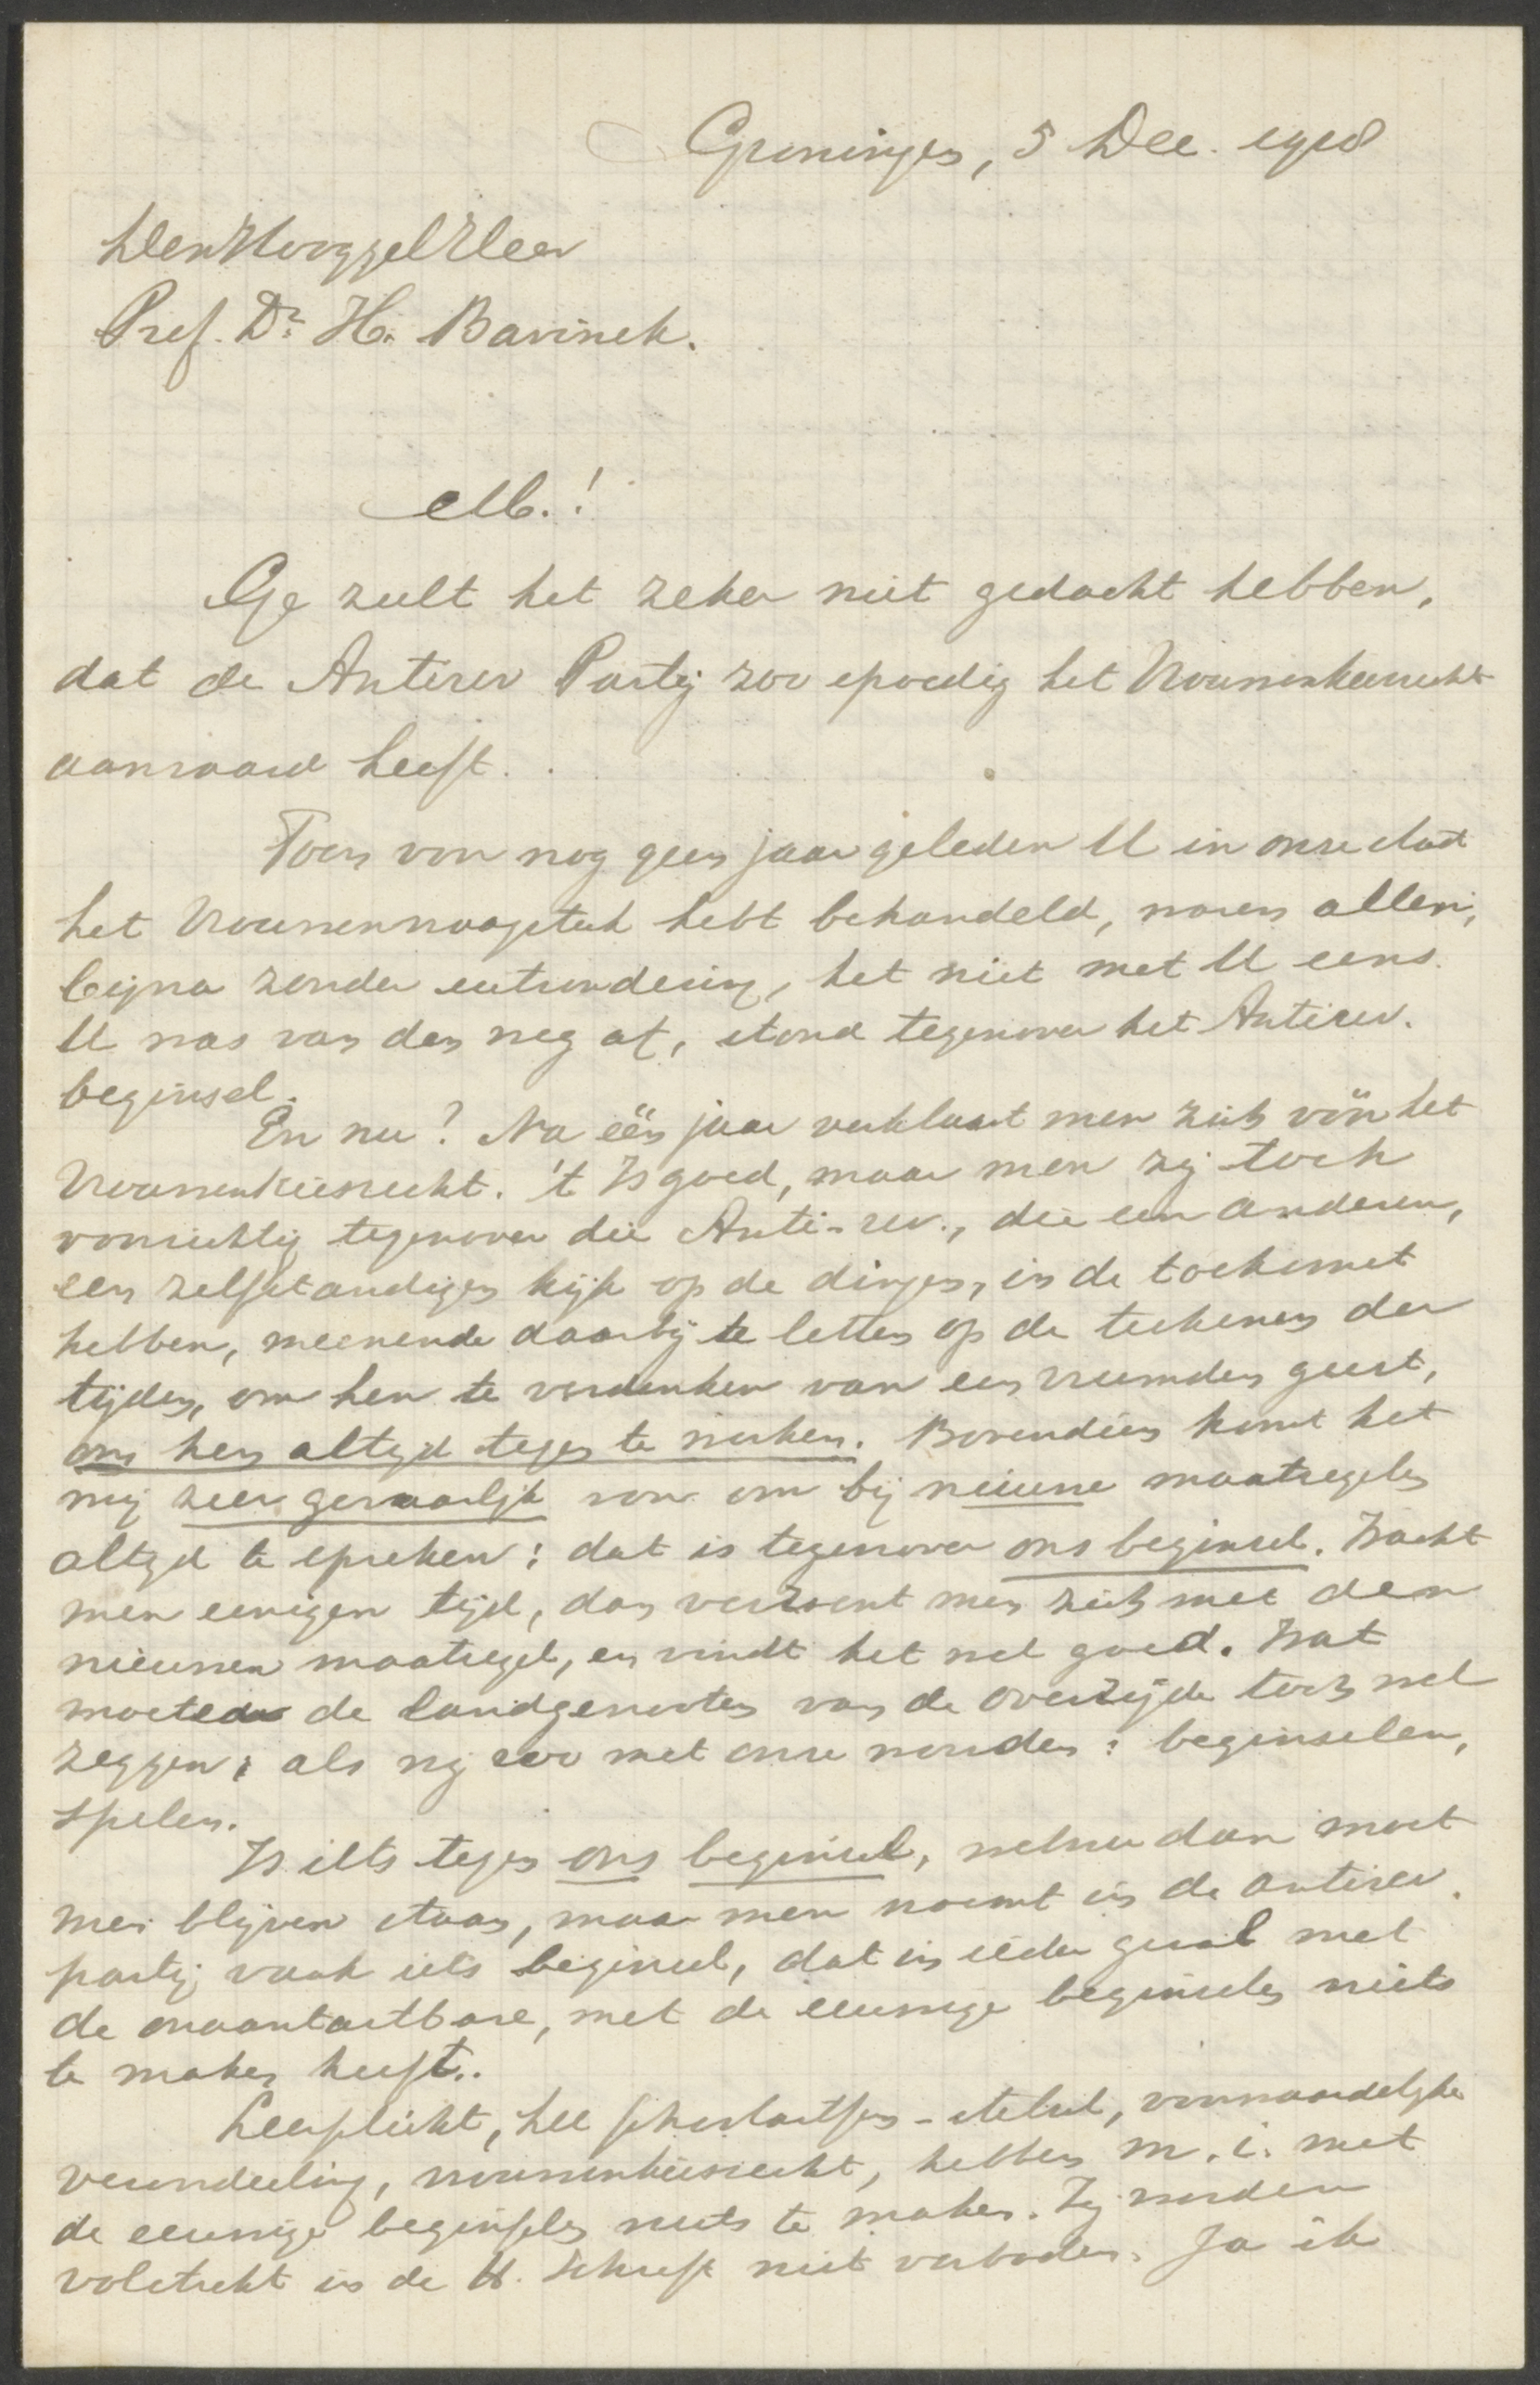 Groningen, 5 Dec. 1918
Den Hooggel Heer
Prof. Dr. H. Bavinck.
M.!
Ge zult het zeker niet gedacht hebben,
dat de Antirev Partij zoo spoedig het Vrouwenkiesrecht
aanvaard heeft.
Toen voor nog geen jaar geleden U in onze stad
het Vrouwenvraagstuk hebt behandeld, waren allen,
bijna zonder uitzondering, het niet met U eens.
U was van den weg af, stond tegenover het Antirev.
beginsel.
En nu? Na één jaar verklaart men zich vóór het
Vrouwenkiesrecht. 't Is goed, maar men zij toch
voorzichtig tegenover die Anti-rev., die een anderen,
een zelfstandigen kijk op de dingen, in de toekomst
hebben, meenende daarbij te letten op de teekenen der
tijden, om hen te verdenken van een vreemden geest,
om hen altijd tegen te werken. Bovendien komt het
mij zeer gevaarlijk voor om bij nieuwe maatregelen
altijd te spreken: dat is tegenover ons beginsel. Wacht
men eenigen tijd, dan verzoent men zich met den
nieuwen maatregel, en vindt het wel goed. Wat
moeten de landgenooten van de overzijde toch wel
zeggen, als wij zoo met onze woorden: beginselen,
spelen.
Is iets tegen ons beginsel, welnu dan moet
men blijven staan, maar men noemt in de antirev.
partij vaak iets beginsel, dat in ieder geval met
de onaantastbare, met de eeuwige beginselen niets
te maken heeft.
Leerplicht, het stelsel, voorwaardelijke
veroordeeling, vrouwenkiesrecht, hebben m.i. met
de eeuwige beginselen niets te maken. Zij worden
volstrekt in de H. Schrift niet verboden. Ja ik